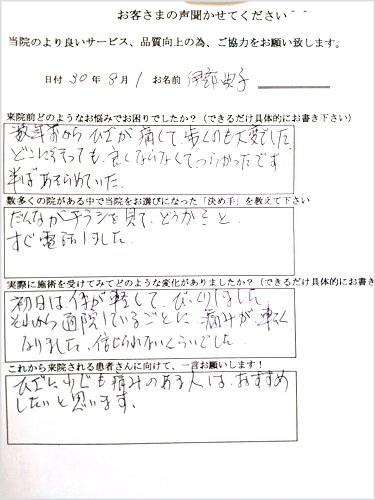 お客さまの声聞かせてください
当院のより良いサービス、品質向上の為、ご協力をお願い致します。
日付 30年 8月 1 お名前 伊部 典子
来院前どのようなお悩みでお困りでしたか？（できるだけ具体的にお書き下さい）
数年前から ひざが 痛くて、歩くのも大変でした
どこに行っても、良くならなくてつらかったです
半ばあきらめていた。
数多くの院がある中で当院をお選びになった「決め手」を教えて下さい
だんながチラシを見て、どうかこと
すぐ電話しました。
実際に施術を受けてみてどのような変化がありましたか？（できるだけ具体的にお書き
初日は、体が軽して、びっくりしました。
それから通院しているごとに、痛みが軽く
なりました。信じられないくらいでした。
これから来院される患者さんに向けて、一言お願いします！
ひざに少しでも痛みのある人は、おすすめ
したいと思います。